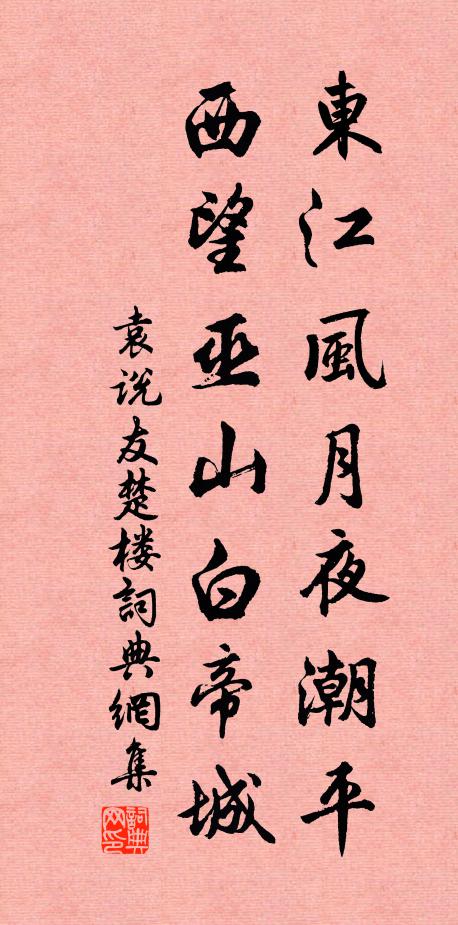 東江風月夜潮平
西望巫山白帝城
袁说友楚楼詞典網集
詞典網印